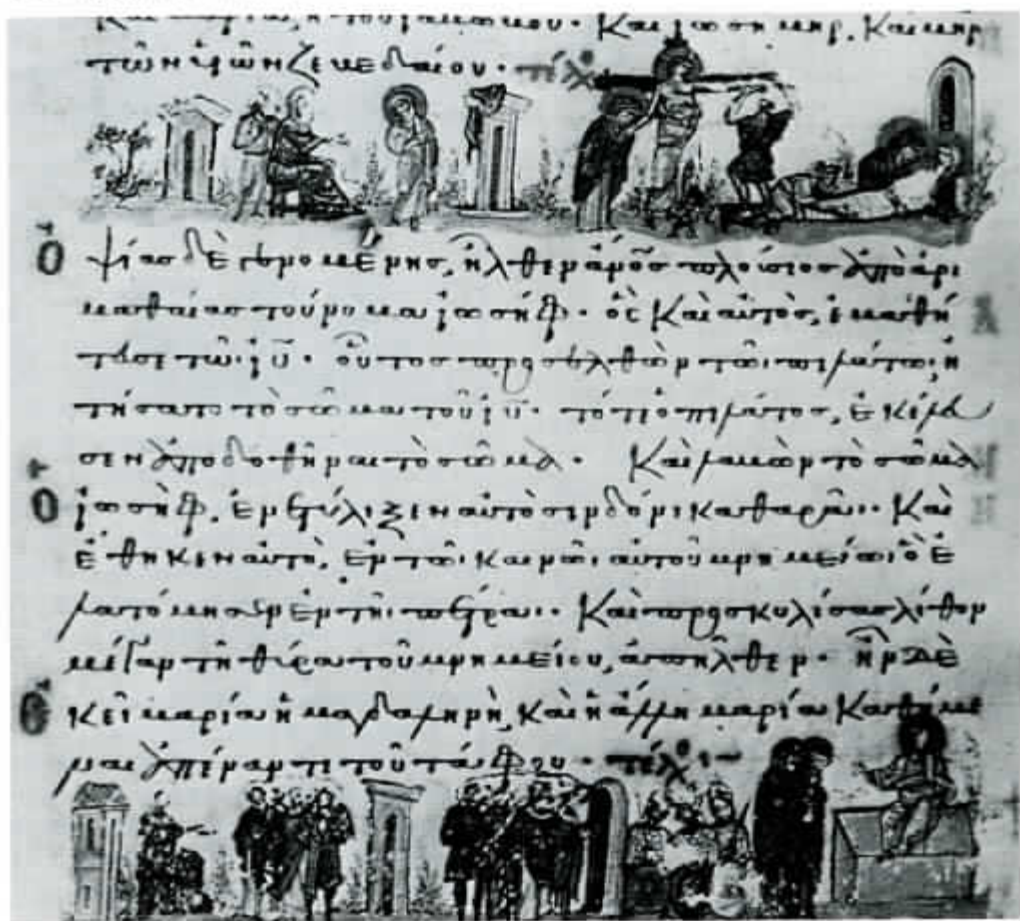 Καὶ μαρία, ἡ τοῦ ἰακώβου· Καὶ ἰωσῆ μηρ, Καὶ μηρ
τῶν υἱῶν ζεβεδαίου· τέλ
Ὀψίας δὲ γενομένης, ἦλθεν ἄνος πλούσιος ἀπὸ ἀρι
μαθαίας τοὔνομα ἰωσήφ· ὃς Καὶ αὐτὸς, ἐμαθή
τευσε τῶι ἰῦ· οὗτος προσελθὼν τῶι πιλάτωι, ἠ
τήσατο τὸ σῶμα τοῦ ἰῦ· τότε ὁ πιλάτος, ἐκέλευ
σεν ἀποδοθῆναι τὸ σῶμα· Καὶ λαβὼν τὸ σῶμα
ὁ ἰωσὴφ, ἐνετύλιξεν αὐτὸ σινδόνι καθαρᾶι· Καὶ
ἔθηκεν αὐτὸ, ἐν τῶι Καινῶι αὐτοῦ μνημείωι ὃ ἐ
λατόμησεν ἐν τῆι πέτραι· Καὶ προσκυλίσας λίθον
μέγαν τῆ θύρα τοῦ μνημείου, ἀπῆλθεν· ἦν δὲ
ἐκεῖ μαρία ἡ μαγδαληνὴ, Καὶ ἡ ἄλλη μαρία Καθήμε
ναι ἀπέναντι τοῦ τάφου· τέλ